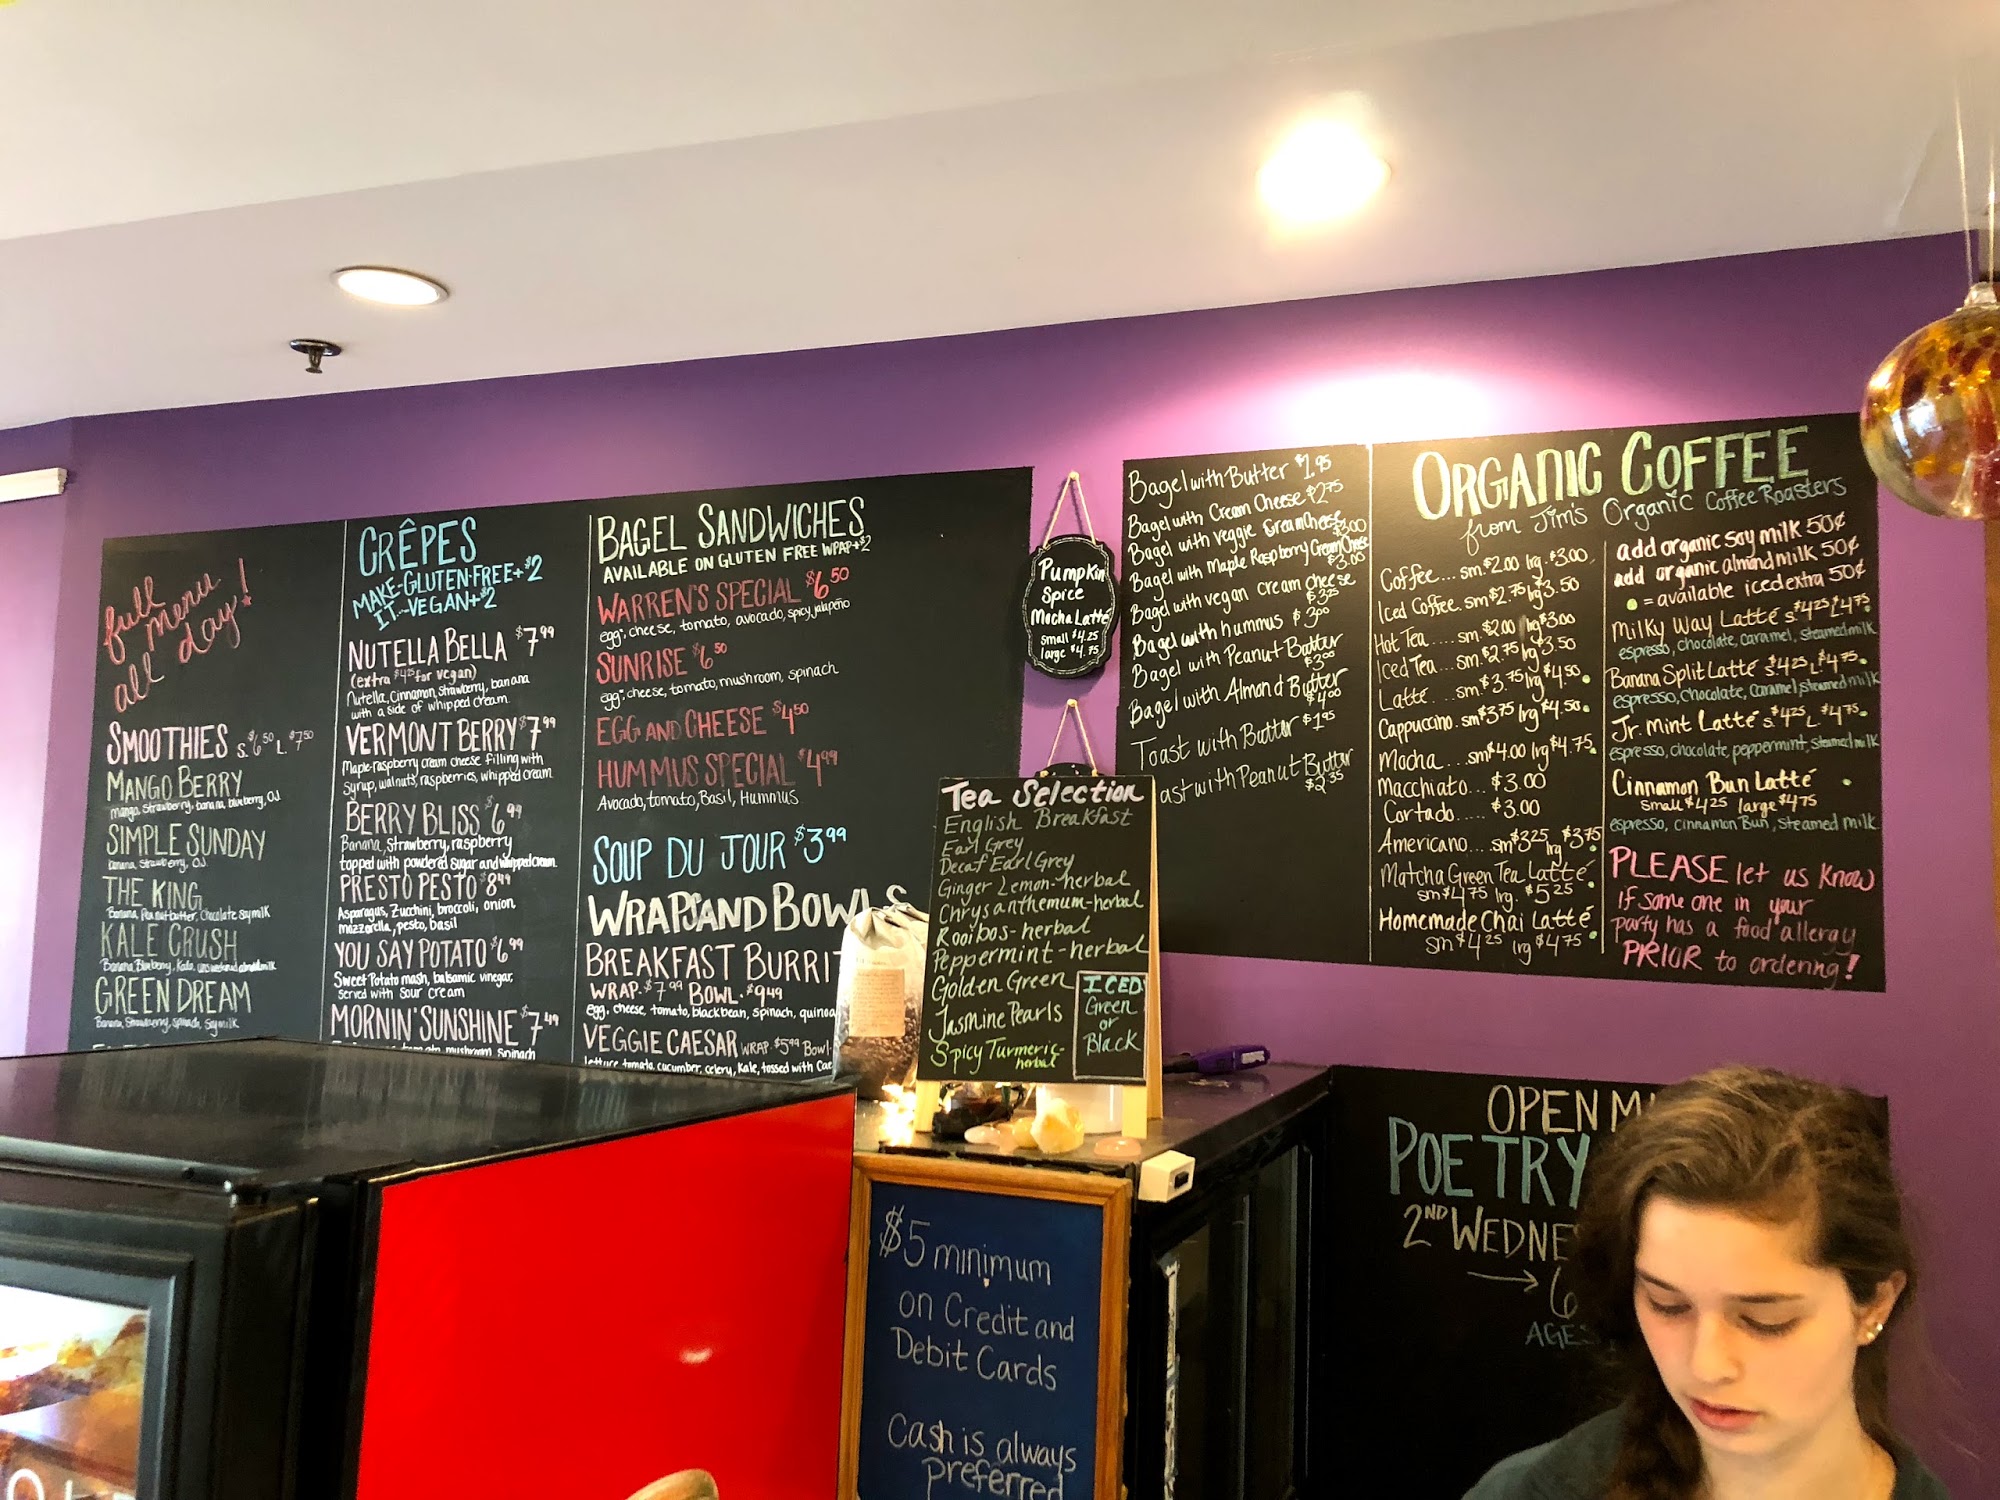 full
menu
all day!
SMOOTHIES S. $6.50 L. $7.50
MANGO BERRY
mango, strawberry, banana, blueberry, OJ
SIMPLE SUNDAY
banana, strawberry, OJ.
THE KING
Banana, Peanut butter, Chocolate Soy milk
KALE CRUSH
Banana, Blueberry, Kale, almond milk
GREEN DREAM
Banana, Strawberry, Spinach, Soy milk
CRÊPES
MAKE-GLUTEN-FREE+$2
IT-VEGAN+$2
NUTELLA BELLA $7.99
(extra $4.25 for vegan)
Nutella, Cinnamon, Strawberry, banana
with a side of whipped cream.
VERMONT BERRY $7.99
Maple-raspberry cream cheese filling with
syrup, walnuts, raspberries, whipped cream
BERRY BLISS $6.99
Banana, Strawberry, raspberry
topped with powdered sugar and whipped cream
PRESTO PESTO $8.49
Asparagus, Zucchini, broccoli, onion,
mozzarella, pesto, basil
YOU SAY POTATO $6.99
Sweet Potato mash, balsamic vinegar,
served with sour cream
MORNIN' SUNSHINE $7.49
tomato, mushroom, spinach
BAGEL SANDWICHES
AVAILABLE ON GLUTEN FREE WRAP+$2
WARREN'S SPECIAL $6.50
egg, cheese, tomato, avocado, spicy jalapeño
SUNRISE $6.50
egg, cheese, tomato, mushroom, spinach
EGG AND CHEESE $4.50
HUMMUS SPECIAL $4.99
Avocado, tomato, Basil, Hummus
SOUP DU JOUR $3.99
WRAPS AND BOWLS
BREAKFAST BURRIT
WRAP. $7.99 BOWL. $9.49
egg, cheese, tomato, black bean, spinach, quinoa
VEGGIE CAESAR WRAP $5.99 Bowl
lettuce, tomato, cucumber, celery, Kale, tossed with Cae
Pumpkin
Spice
Mocha Latté
small $4.25
large $4.75
Tea Selection
English Breakfast
Earl Grey
Decaf Earl Grey
Ginger Lemon-herbal
Chrysanthemum-herbal
Rooibos-herbal
Peppermint-herbal
Golden Green
Jasmine Pearls
Spicy Turmeric-
herbal
ICED:
Green
or
Black
Bagel with Butter $1.95
Bagel with Cream Cheese $2.75
Bagel with veggie Cream Cheese $3.00
Bagel with Maple Raspberry Cream Cheese
$3.00
Bagel with vegan cream cheese
$3.25
Bagel with hummus $3.00
Bagel with Peanut Butter
$3.00
Bagel with Almond Butter
$4.00
Toast with Butter $1.95
ast with Peanut Butter
$2.35
ORGANIC COFFEE
from Jim's Organic Coffee Roasters
Coffee... sm. $2.00 lrg. $3.00
Iced Coffee. sm $2.75 lrg $3.50
Hot Tea.... sm. $2.00 lrg $3.00
Iced Tea... sm. $2.75 lrg $3.50
Latte.... sm. $3.75 lrg $4.50.
Cappuccino. sm $3.75 lrg $4.50.
Mocha... sm $4.00 lrg $4.75.
Macchiato... $3.00
Cortado..... $3.00
Americano.... sm $3.25 lrg $3.75
Matcha Green Tea Latté
sm $4.75 lrg. $5.25
Homemade Chai Latté
sm $4.25 lrg $4.75
add organic soy milk 50¢
add organic almond milk 50¢
• = available iced extra 50¢
Milky Way Latté s. $4.25 L $4.75.
espresso, chocolate, caramel, steamed milk
Banana Split Latté s. $4.25 L $4.75.
espresso, chocolate, caramel, steamed milk
Jr. Mint Latté s. $4.25 L. $4.75.
espresso, chocolate, peppermint, steamed milk
Cinnamon Bun Latté
small $4.25 large $4.75
espresso, cinnamon Bun, steamed milk
PLEASE let us know
if some one in your
party has a food allergy
PRIOR to ordering!
OPEN M
POETRY
2ND WEDNE
6
AGES
$5 minimum
on Credit and
Debit Cards
Cash is always
preferred